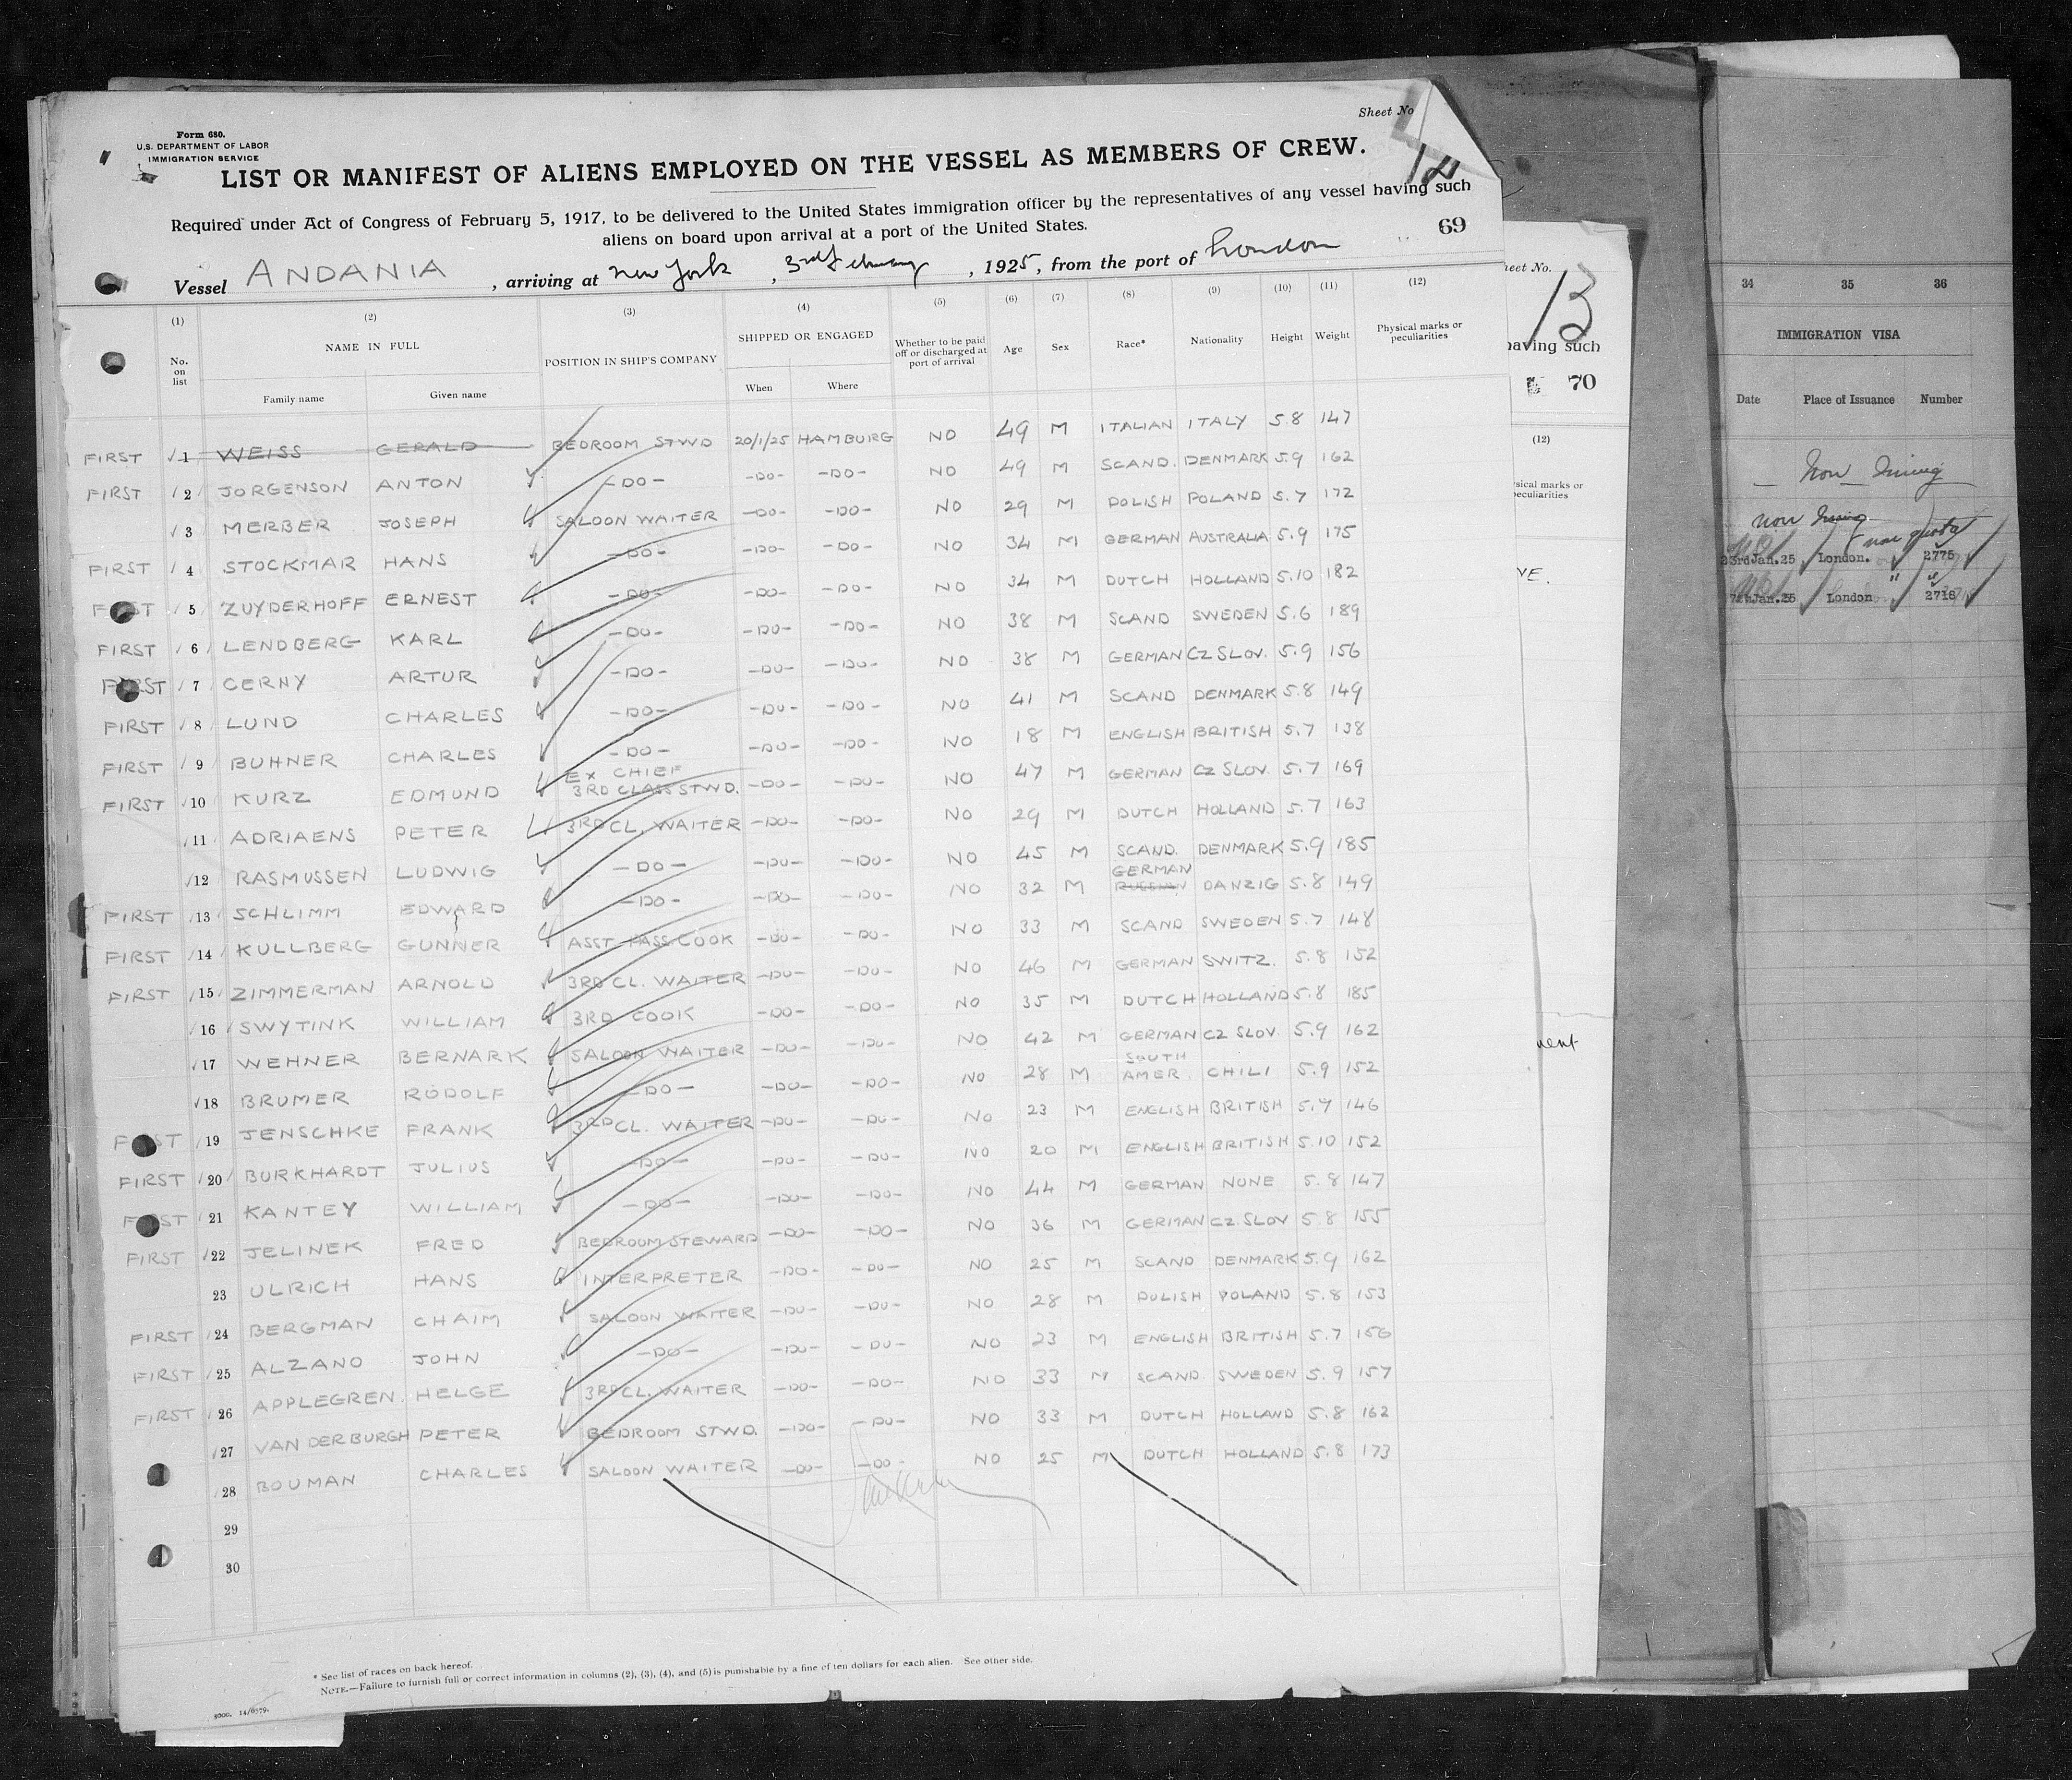 Form 680.
U.S. DEPARTMENT OF LABOR
IMMIGRATION SERVICE
Sheet No
12
LIST OR MANIFEST OF ALIENS EMPLOYED ON THE VESSEL AS MEMBERS OF CREW.
Required under Act of Congress of February 5, 1917, to be delivered to the United States immigration officer by the representatives of any vessel having such
aliens on board upon arrival at a port of the United States.
69
Vessel ANDANIA, arriving at New York, 3rd February, 1925, from the port of London
(1) (2) (3) (4) (5) (6) (7) (8) (9) (10) (11) (12)
No. on list NAME IN FULL Family name Given name POSITION IN SHIP'S COMPANY SHIPPED OR ENGAGED When Where Whether to be paid off or discharged at port of arrival Age Sex Race* Nationality Height Weight Physical marks or peculiarities
FIRST 1 WEISS GERALD BEDROOM STWD 20/1/25 HAMBURG NO 49 M ITALIAN ITALY 5.8 147
FIRST 2 JORGENSON ANTON -DO- -DO- -DO- NO 49 M SCAND. DENMARK 5.9 162
3 MERBER JOSEPH SALOON WAITER -DO- -DO- NO 29 M POLISH POLAND 5.7 172
FIRST 4 STOCKMAR HANS -DO- -DO- -DO- NO 34 M GERMAN AUSTRALIA 5.9 175
FIRST 5 ZUYDERHOFF ERNEST -DO- -DO- -DO- NO 34 M DUTCH HOLLAND 5.10 182
FIRST 6 LENDBERG KARL -DO- -DO- -DO- NO 38 M SCAND SWEDEN 5.6 189
FIRST 7 CERNY ARTUR -DO- -DO- -DO- NO 38 M GERMAN CZ SLOV. 5.9 156
FIRST 8 LUND CHARLES -DO- -DO- -DO- NO 41 M SCAND DENMARK 5.8 149
FIRST 9 BUHNER CHARLES -DO- -DO- -DO- NO 18 M ENGLISH BRITISH 5.7 138
FIRST 10 KURZ EDMUND EX CHIEF 3RD CLASS STWD. -DO- -DO- NO 47 M GERMAN CZ SLOV. 5.7 169
11 ADRIAENS PETER 3RD CL. WAITER -DO- -DO- NO 29 M DUTCH HOLLAND 5.7 163
12 RASMUSSEN LUDWIG -DO- -DO- -DO- NO 45 M SCAND. DENMARK 5.9 185
FIRST 13 SCHLIMM EDWARD -DO- -DO- -DO- NO 32 M GERMAN RUSSIAN DANZIG 5.8 149
FIRST 14 KULLBERG GUNNER ASST PASS COOK -DO- -DO- NO 33 M SCAND SWEDEN 5.7 148
FIRST 15 ZIMMERMAN ARNOLD 3RD CL. WAITER -DO- -DO- NO 46 M GERMAN SWITZ. 5.8 152
16 SWYTINK WILLIAM 3RD COOK -DO- -DO- NO 35 M DUTCH HOLLAND 5.8 185
17 WEHNER BERNARK SALOON WAITER -DO- -DO- NO 42 M GERMAN CZ SLOV. 5.9 162
18 BRUMER RODOLF -DO- -DO- -DO- NO 28 M SOUTH AMER. CHILI 5.9 152
FIRST 19 JENSCHKE FRANK 3RD CL. WAITER -DO- -DO- NO 23 M ENGLISH BRITISH 5.7 146
FIRST 20 BURKHARDT JULIUS -DO- -DO- -DO- NO 20 M ENGLISH BRITISH 5.10 152
FIRST 21 KANTEY WILLIAM -DO- -DO- -DO- NO 44 M GERMAN NONE 5.8 147
FIRST 22 JELINEK FRED BEDROOM STEWARD -DO- -DO- NO 36 M GERMAN CZ. SLOV 5.8 155
23 ULRICH HANS INTERPRETER -DO- -DO- NO 25 M SCAND DENMARK 5.9 162
FIRST 24 BERGMAN CHAIM SALOON WAITER -DO- -DO- NO 28 M POLISH POLAND 5.8 153
FIRST 25 ALZANO JOHN -DO- -DO- -DO- NO 23 M ENGLISH BRITISH 5.7 156
FIRST 26 APPLEGREN. HELGE 3RD CL. WAITER -DO- -DO- NO 33 M SCAND. SWEDEN 5.9 157
27 VAN DER BURGH PETER BEDROOM STWD. -DO- -DO- NO 33 M DUTCH HOLLAND 5.8 162
28 BOUMAN CHARLES SALOON WAITER -DO- -DO- NO 25 M DUTCH HOLLAND 5.8 173
29
30
* See list of races on back hereof.
NOTE.—Failure to furnish full or correct information in columns (2), (3), (4), and (5) is punishable by a fine of ten dollars for each alien. See other side.
5000. 14/6579.
heet No.
13
having such
70
(12)
sical marks or
peculiarities
VE.
34 35 36
IMMIGRATION VISA
Date Place of Issuance Number
23rd Jan. 25 London. 2775
Jan. 25 London " 2718